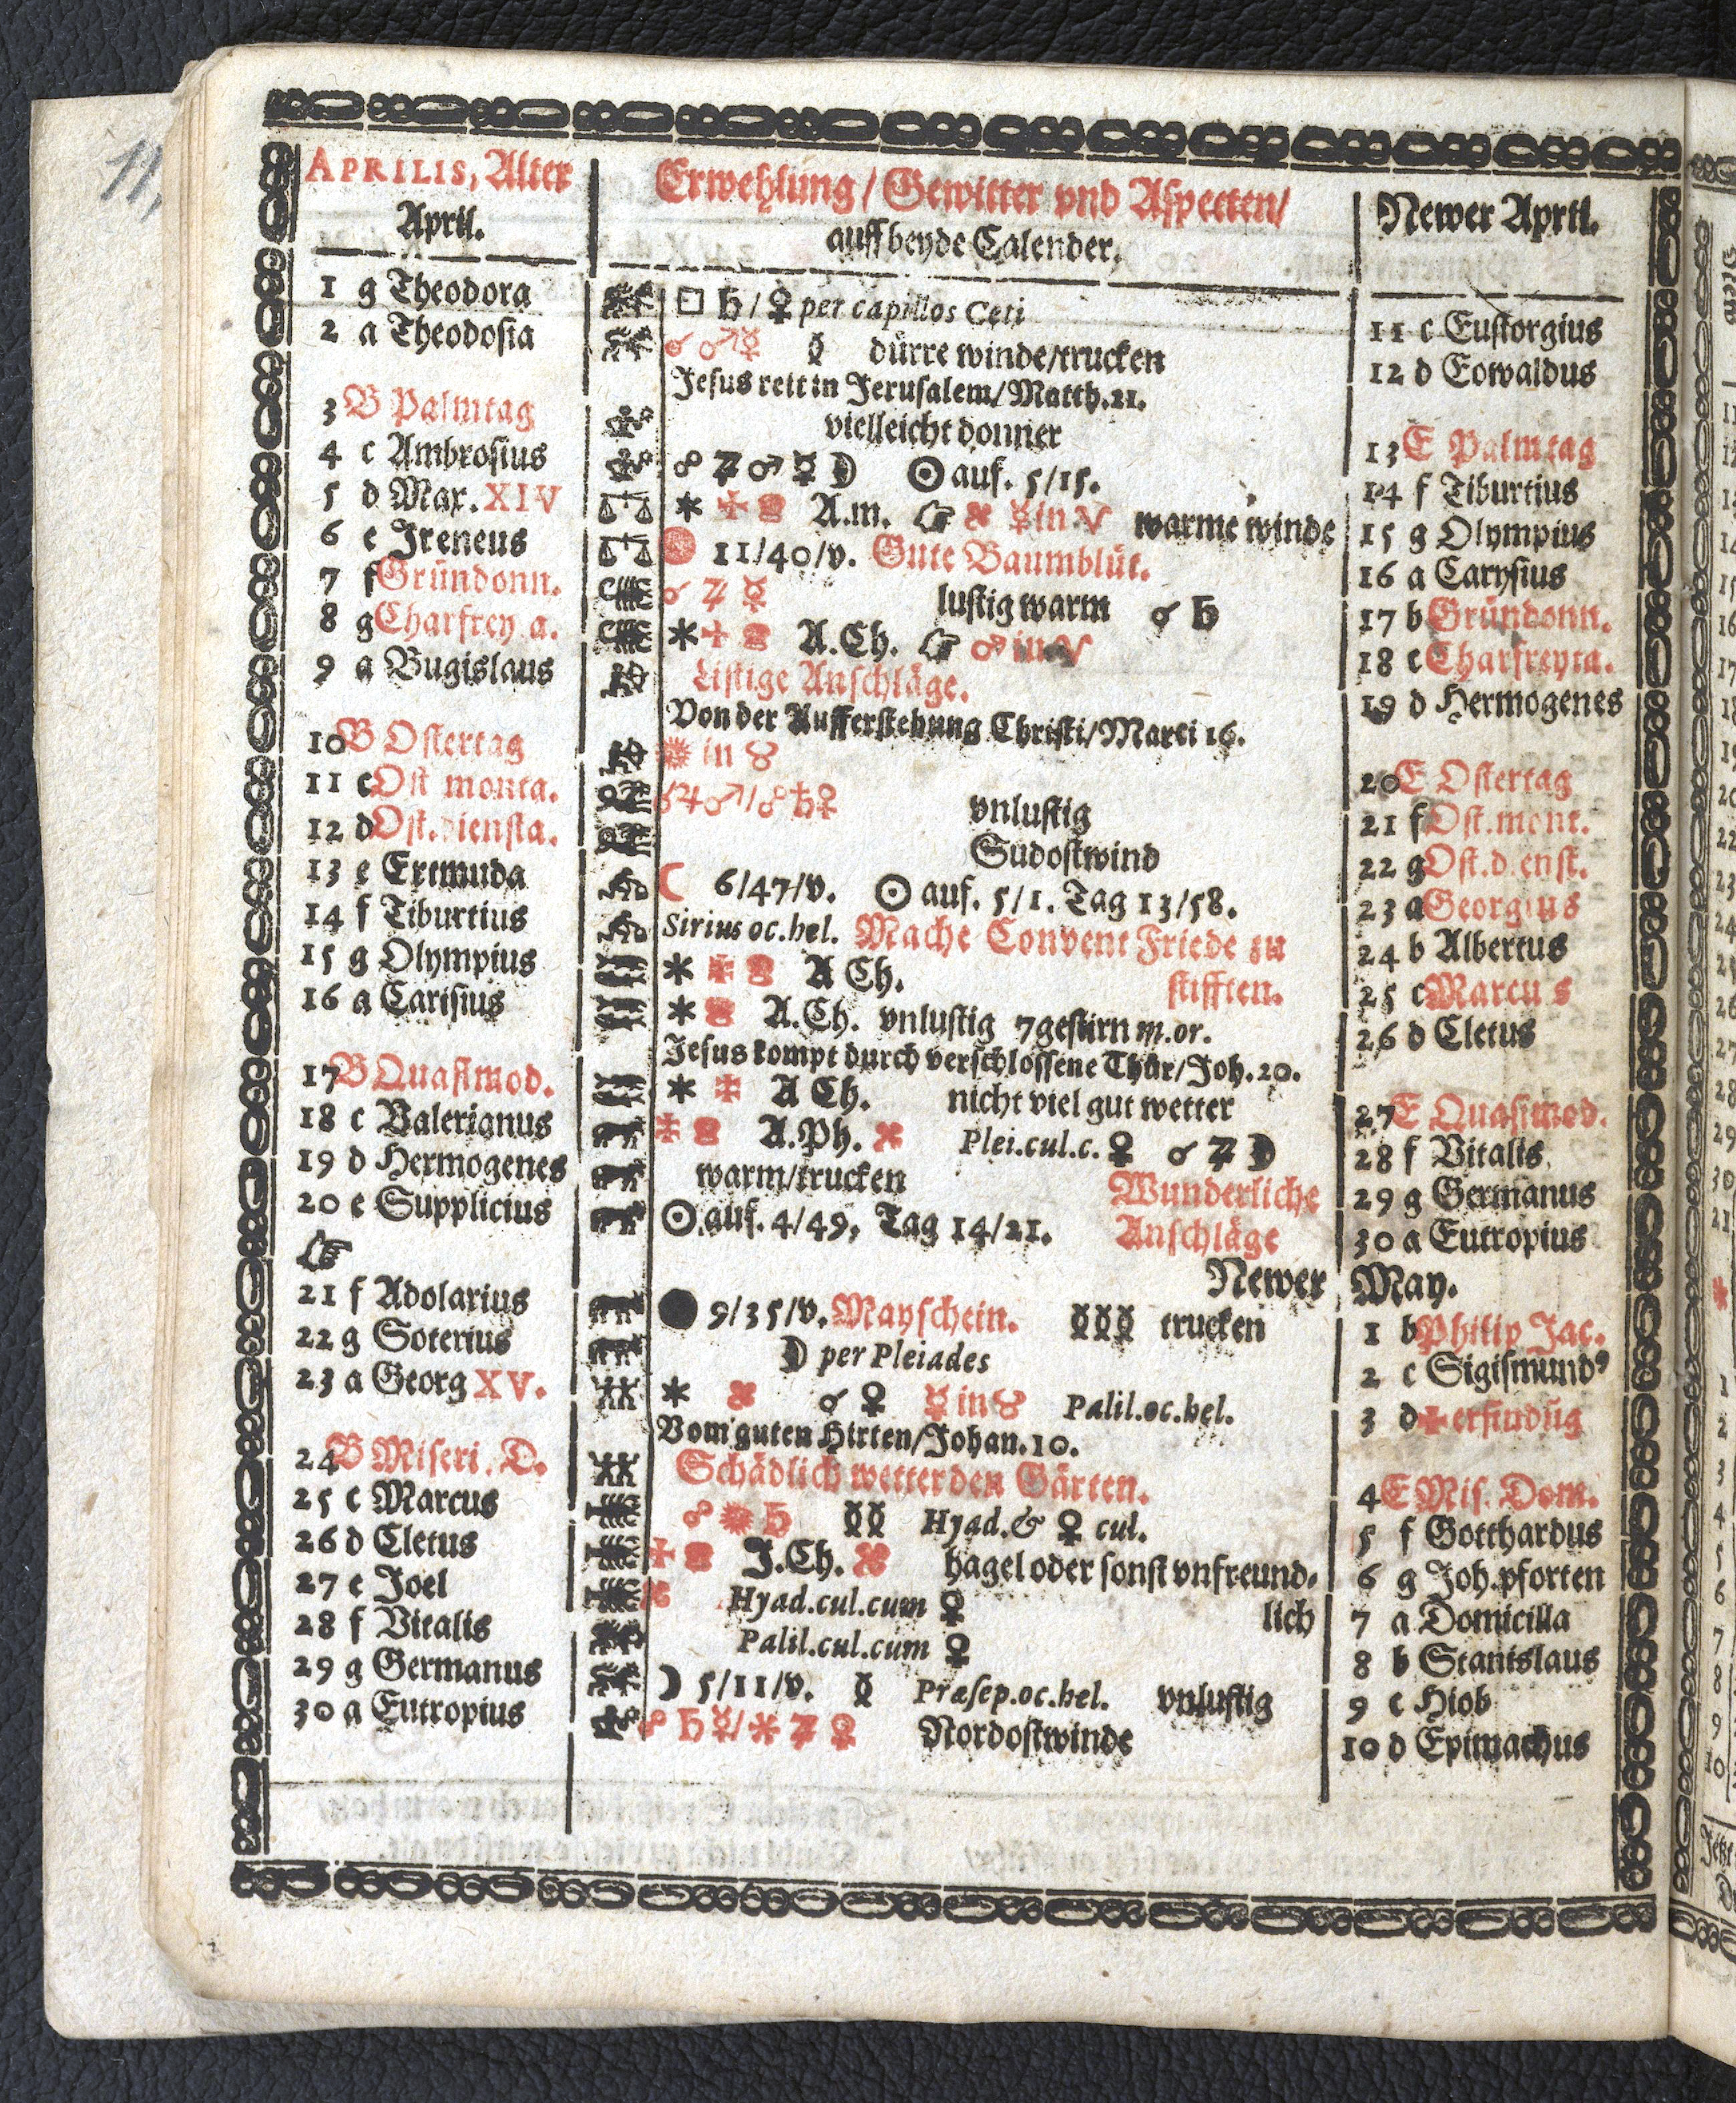 APRILIS, Alter
April.
1 g Theodora
2 a Theodosia
3 B Palmtag
4 c Ambrosius
5 d Max. XIV
6 e Ireneus
7 f Gründonn.
8 g Charfrey a.
9 a Bugislaus
10 B Ostertag
11 c Ost monta.
12 d Ost. diensta.
13 e Ertmuda
14 f Tiburtius
15 g Olympius
16 a Carisius
17 B Quasimod.
18 c Valerianus
19 d Hermogenes
20 e Supplicius
☞
21 f Adolarius
22 g Soterius
23 a Georg XV.
24 B Miseri. D.
25 c Marcus
26 d Cletus
27 e Joel
28 f Vitalis
29 g Germanus
30 a Eutropius
Erwehlung/ Gewitter vnd Aspecten/
auff beyde Calender.
□ ♄ / ♀ per capillos Ceti
☌ ♂ ☿ dürre winde/trucken
Jesus reit in Jerusalem/ Matth. 21.
vielleicht donner
☍ ♃ ♂ ☿ ☽ ☉ auf. 5/15.
* A.m. ☞ ☿ in ♈ warme winde
11/40/v. Gute Baumblüt.
☌ ♃ ☿ lustig warm ☌ ♄
* A.Ch. ☞ ♂ in ♈
Listige Anschläge.
Von der Aufferstehung Christi/ Marci 16.
in ♉
♃ ♂ / ☍ ♄ ♀ vnlustig
Sudostwind
☾ 6/47/v. ☉ auf. 5/1. Tag 13/58.
Sirius oc. hel. Mache Convent Friede zu
* A Ch. stifften.
* A.Ch. vnlustig 7gestirn m. or.
Jesus kompt durch verschlossene Thür/ Joh. 20.
* A Ch. nicht viel gut wetter
A.Ph. Plei. cul. c. ♀ ☌ ♃ ☽
warm/trucken Wunderliche
☉ auf. 4/49, Tag 14/21. Anschläge
Newer
9/35/v. Mayschein. trucken
☽ per Pleiades
* ☌ ♀ ☿ in ♉ Palil. oc. hel.
Vom guten Hirten/ Johan. 10.
Schädlich wetter den Gärten.
☍ ♄ Hyad. & ♀ cul.
J.Ch. hagel oder sonst vnfreund-
Hyad. cul. cum ♀ lich
Palil. cul. cum ♀
☽ 5/11/v. Præsep. oc. hel. vnlustig
☍ ♄ ☿ / * ♃ ♀ Nordostwinde
Newer April.
11 c Eustorgius
12 d Eowaldus
13 E Palmtag
14 f Tiburtius
15 g Olympius
16 a Carysius
17 b Gründonn.
18 c Charfreyta.
19 d Hermogenes
20 E Ostertag
21 f Ost. mont.
22 g Ost. dienst.
23 a Georgius
24 b Albertus
25 c Marcus
26 d Cletus
27 E Quasimod.
28 f Vitalis
29 g Germanus
30 a Eutropius
May.
1 b Philip Jac.
2 c Sigismund9
3 d ✠ erfindũg
4 E Mis. Dom.
5 f Gotthardus
6 g Joh. pforten
7 a Domicilla
8 b Stanislaus
9 c Hiob
10 d Epimachus